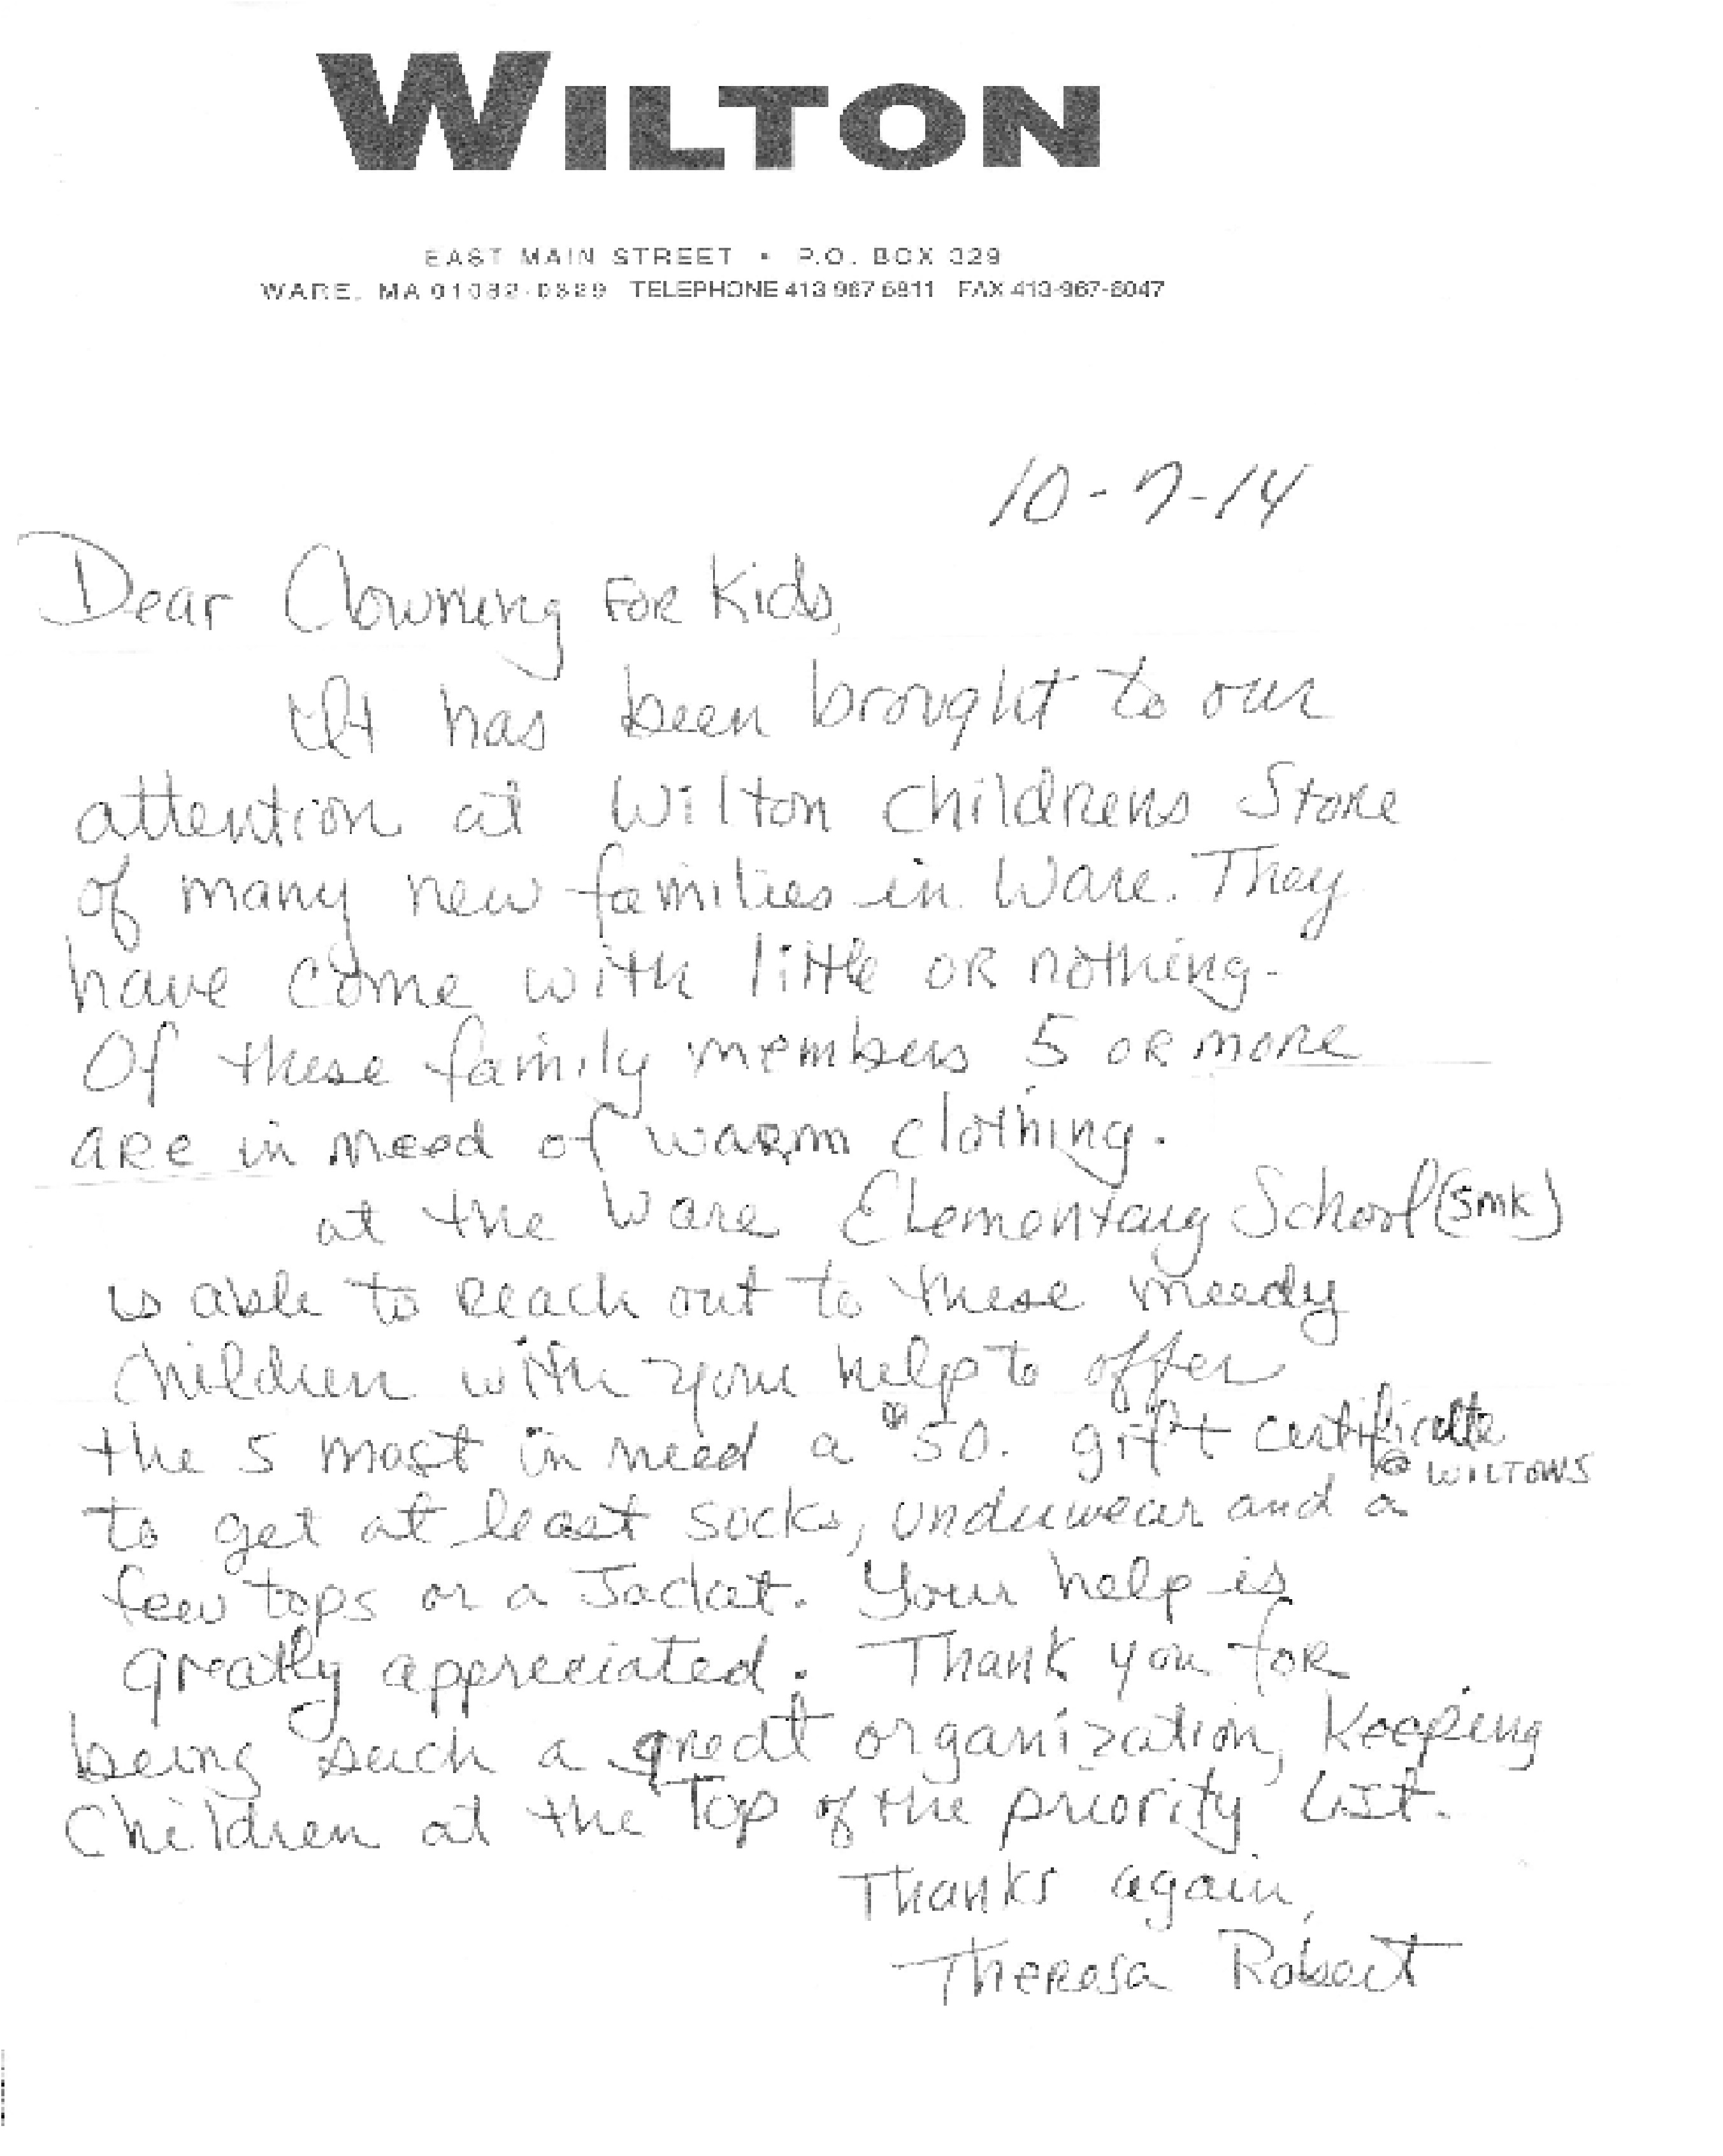 WILTON
EAST MAIN STREET • P.O. BOX 329
WARE, MA TELEPHONE 413 967 5811 FAX 413-967-8047
10-7-14
Dear Clowning FOR Kids,
It has been brought to our
attention at Wilton Childrens Store
of many new families in Ware. They
have come with little or nothing.
Of these family members 5 or more
are in need of warm clothing.
at the Ware Elementary School (SMK)
is able to reach out to these needy
children with your help to offer
the 5 most in need a $50. gift certificate
@ WILTONS
to get at least socks, underwear and a
few tops or a Jacket. Your help is
greatly appreciated. Thank you for
being such a great organization, keeping
Children at the Top of the priority List.
Thanks again,
Theresa Robert